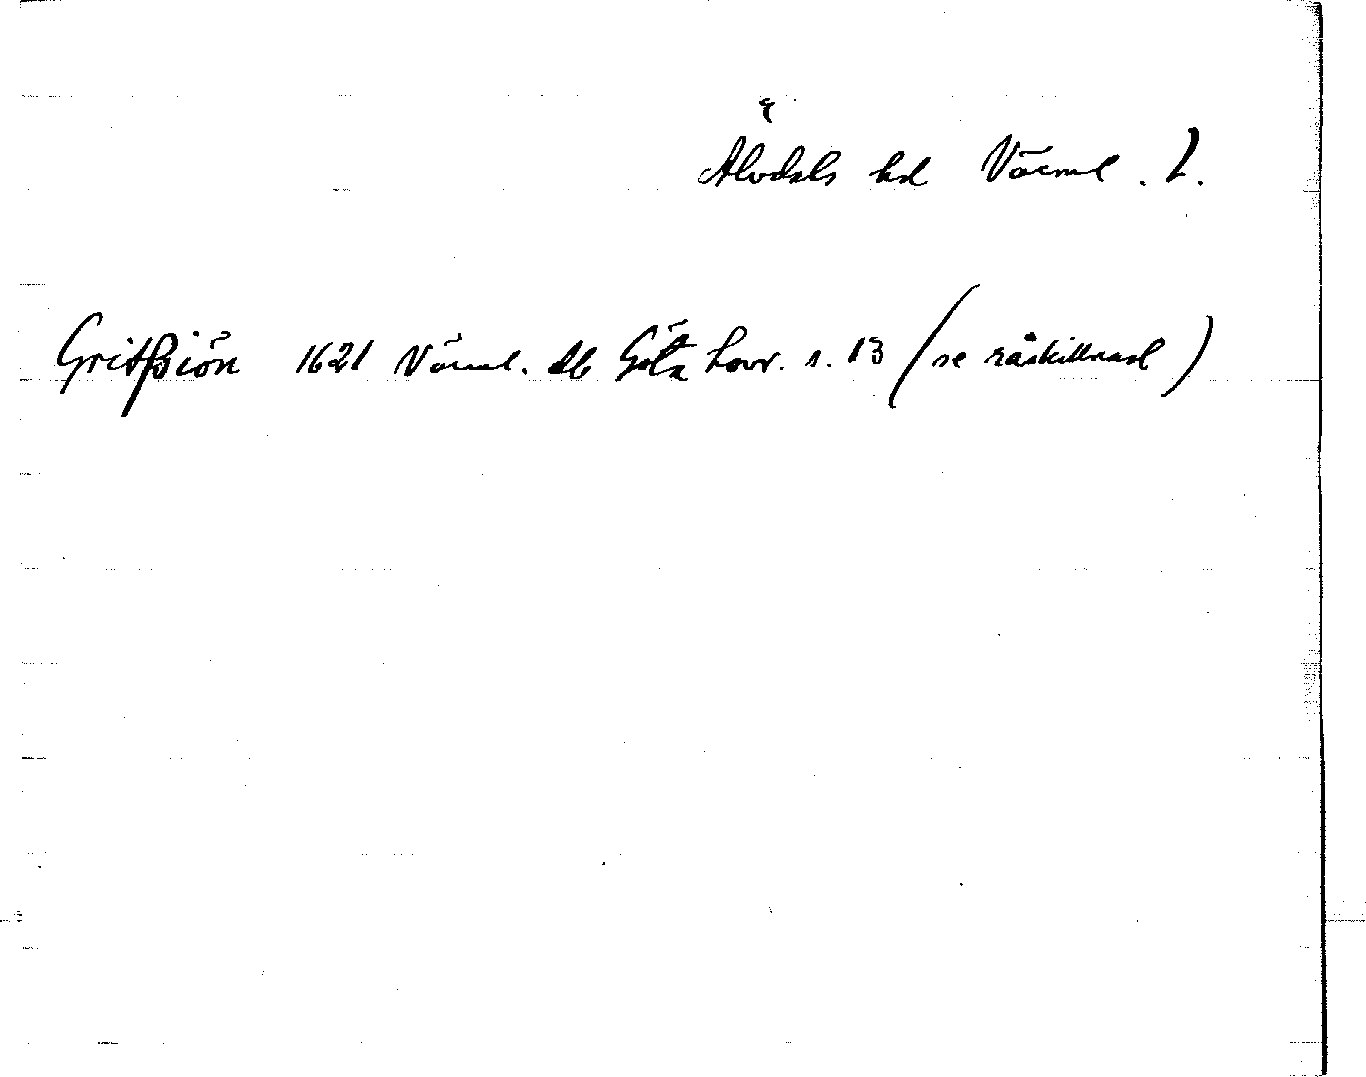 Älvdals hd Värml. l.
Gritßiön 1621 Värml. db Göta hovr. s. 13 (se råskillnad)